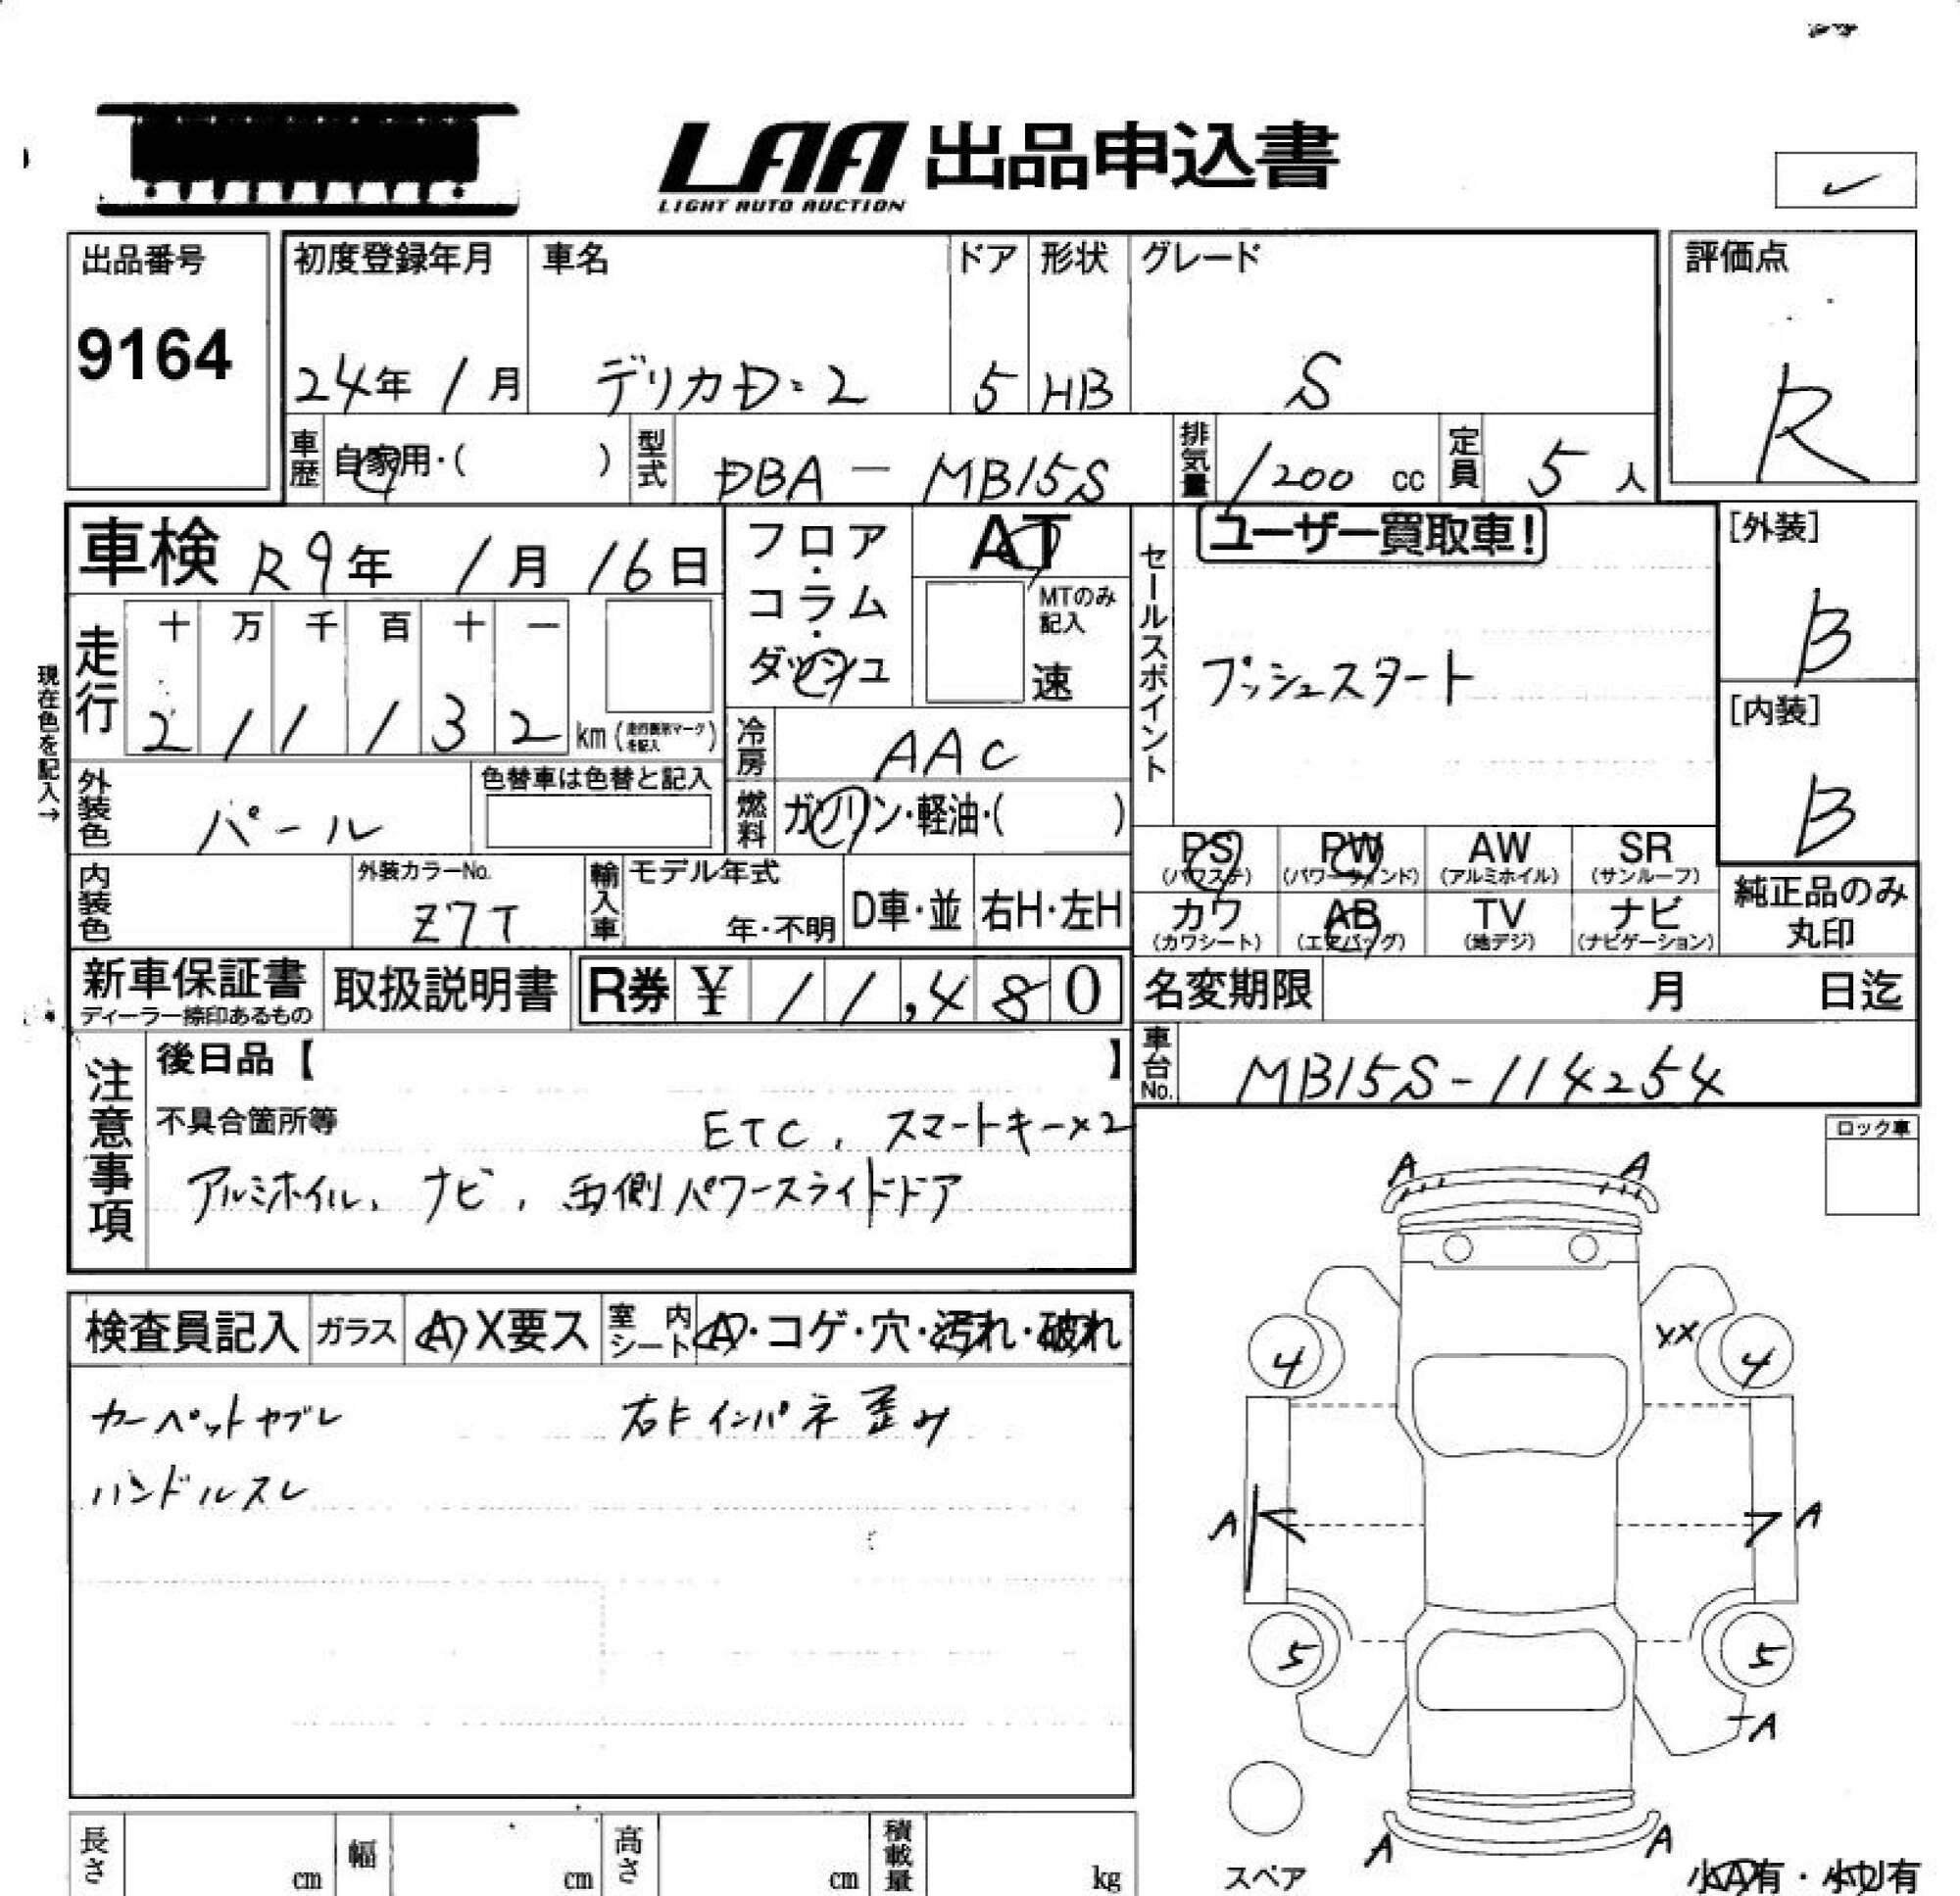 LAA 出品申込書
LIGHT AUTO AUCTION
出品番号
9164
初度登録年月
24年 1月
車名
デリカD:2
ドア
5
形状
HB
グレード
S
評価点
R
車歴 自家用・( )
型式 DBA-MB15S
排気量 1200 cc
定員 5 人
車検 R9年 1月 16日
フロア・コラム・ダッシュ
AT
MTのみ記入
速
セールスポイント
ユーザー買取車!
プッシュスタート
[外装]
B
[内装]
B
現在色を記入→
走行
十 万 千 百 十 一
2 1 1 1 3 2 km (走行面形マークを記入)
冷房 AAC
外装色 パール
色替車は色替と記入
燃料 ガソリン・軽油・( )
PS (パワステ)
PW (パワーウインド)
AW (アルミホイル)
SR (サンルーフ)
カワ (カワシート)
AB (エアバッグ)
TV (地デジ)
ナビ (ナビゲーション)
純正品のみ
丸印
内装色
外装カラーNo.
Z7T
輸入車
モデル年式
年・不明
D車・並
右H・左H
新車保証書
ディーラー捺印あるもの
取扱説明書
R券 ¥ 11,480
名変期限 月 日迄
車台No. MB15S-114254
注意事項
後日品【 】
不具合箇所等
ETC, スマートキー×2
アルミホイル, ナビ, 両側パワースライドドア
ロック車
検査員記入
ガラス
A X要ス
室内シート
A・コゲ・穴・汚れ・破れ
カーペットヤブレ
右Fインパネ歪み
ハンドルスレ
A A
XX
4 4
A A
5 5
A
A A
スペア
小A有・小U有
長さ cm
幅 cm
高さ cm
積載量 kg